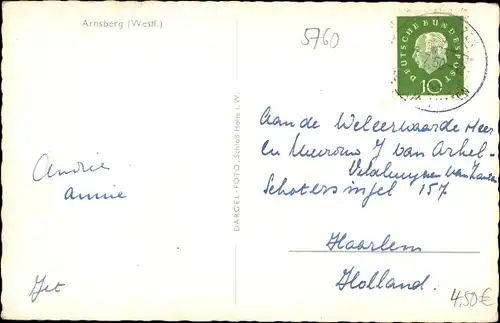 Arnsberg (Westf.)
5760
DEUTSCHE BUNDESPOST
10
DARGEL-FOTO, Schloß Herte i. W.
Aan de Weleerwaarde Heer
En Mevrouw J van Arkel-
Schotersingel 157
Haarlem
Holland.
Andrie
Annie
Jet
4,50€